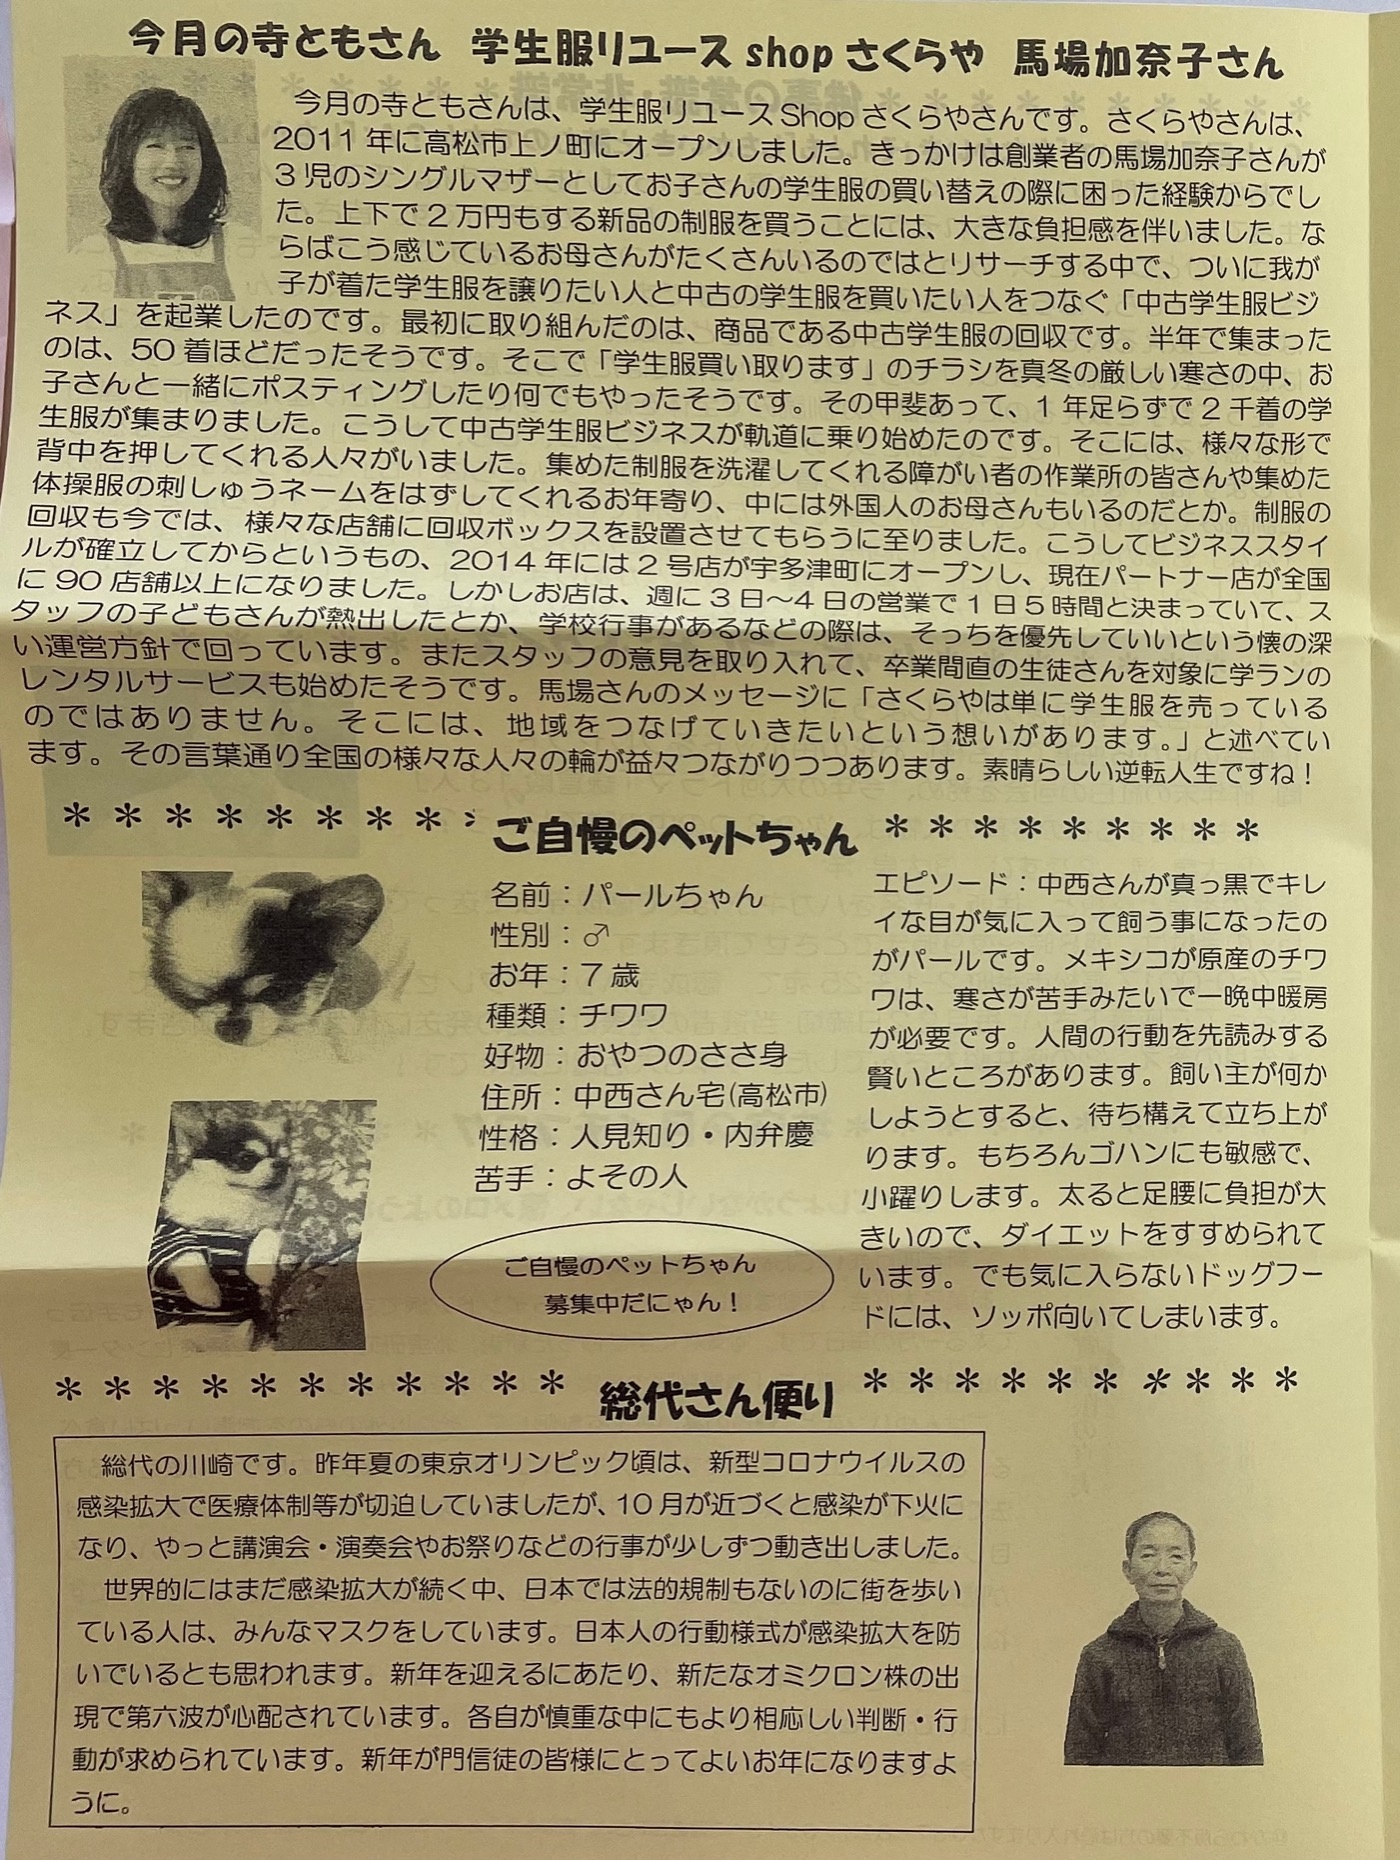 今月の寺ともさん　学生服リユース shop さくらや　馬場加奈子さん
今月の寺ともさんは、学生服リユース Shop さくらやさんです。さくらやさんは、
2011 年に高松市上ノ町にオープンしました。きっかけは創業者の馬場加奈子さんが
3 児のシングルマザーとしてお子さんの学生服の買い替えの際に困った経験からでし
た。上下で 2 万円もする新品の制服を買うことには、大きな負担感を伴いました。な
らばこう感じているお母さんがたくさんいるのではとリサーチする中で、ついに我が
子が着た学生服を譲りたい人と中古の学生服を買いたい人をつなぐ「中古学生服ビジ
ネス」を起業したのです。最初に取り組んだのは、商品である中古学生服の回収です。半年で集まった
のは、50 着ほどだったそうです。そこで「学生服買い取ります」のチラシを真冬の厳しい寒さの中、お
子さんと一緒にポスティングしたり何でもやったそうです。その甲斐あって、1 年足らずで 2 千着の学
生服が集まりました。こうして中古学生服ビジネスが軌道に乗り始めたのです。そこには、様々な形で
背中を押してくれる人々がいました。集めた制服を洗濯してくれる障がい者の作業所の皆さんや集めた
体操服の刺しゅうネームをはずしてくれるお年寄り、中には外国人のお母さんもいるのだとか。制服の
回収も今では、様々な店舗に回収ボックスを設置させてもらうに至りました。こうしてビジネススタイ
ルが確立してからというもの、2014 年には 2 号店が宇多津町にオープンし、現在パートナー店が全国
に 90 店舗以上になりました。しかしお店は、週に 3 日～4 日の営業で 1 日 5 時間と決まっていて、ス
タッフの子どもさんが熱出したとか、学校行事があるなどの際は、そっちを優先していいという懐の深
い運営方針で回っています。またスタッフの意見を取り入れて、卒業間直の生徒さんを対象に学ランの
レンタルサービスも始めたそうです。馬場さんのメッセージに「さくらやは単に学生服を売っている
のではありません。そこには、地域をつなげていきたいという想いがあります。」と述べてい
ます。その言葉通り全国の様々な人々の輪が益々つながりつつあります。素晴らしい逆転人生ですね！
＊＊＊＊＊＊＊＊＊ ご自慢のペットちゃん ＊＊＊＊＊＊＊＊＊
名前：パールちゃん
性別：♂
お年：7 歳
種類：チワワ
好物：おやつのささ身
住所：中西さん宅(高松市)
性格：人見知り・内弁慶
苦手：よその人
ご自慢のペットちゃん
募集中だにゃん！
エピソード：中西さんが真っ黒でキレ
イな目が気に入って飼う事になったの
がパールです。メキシコが原産のチワ
ワは、寒さが苦手みたいで一晩中暖房
が必要です。人間の行動を先読みする
賢いところがあります。飼い主が何か
しようとすると、待ち構えて立ち上が
ります。もちろんゴハンにも敏感で、
小躍りします。太ると足腰に負担が大
きいので、ダイエットをすすめられて
います。でも気に入らないドッグフー
ドには、ソッポ向いてしまいます。
＊＊＊＊＊＊＊＊＊＊＊ 総代さん便り ＊＊＊＊＊＊＊＊＊＊
総代の川崎です。昨年夏の東京オリンピック頃は、新型コロナウイルスの
感染拡大で医療体制等が切迫していましたが、10 月が近づくと感染が下火に
なり、やっと講演会・演奏会やお祭りなどの行事が少しずつ動き出しました。
世界的にはまだ感染拡大が続く中、日本では法的規制もないのに街を歩い
ている人は、みんなマスクをしています。日本人の行動様式が感染拡大を防
いでいるとも思われます。新年を迎えるにあたり、新たなオミクロン株の出
現で第六波が心配されています。各自が慎重な中にもより相応しい判断・行
動が求められています。新年が門信徒の皆様にとってよいお年になりますよ
うに。